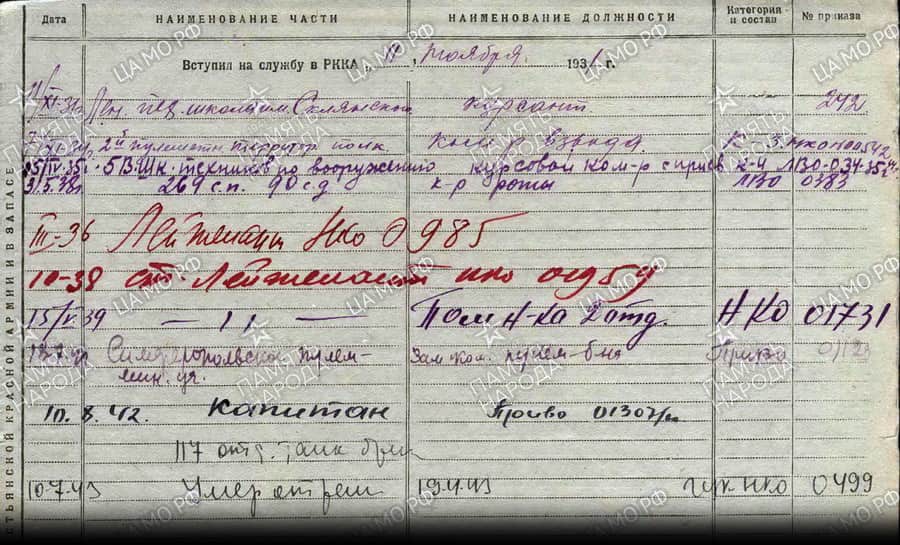 Дата НАИМЕНОВАНИЕ ЧАСТИ НАИМЕНОВАНИЕ ДОЛЖНОСТИ Категория и состав № приказа
Вступил на службу в РККА „11“ ноября 1931 г.
XI-31 Лен. пех. школа им. Склянского курсант 242
2й пулеметн. территор. полк ком-р взвода К-3 НКО 00542
5/IV-35 5 В. Шк. техников по вооружению курсовой ком-р с присв К-4 ЛВО-034-35
3/5.38 269 с.п. 90 с.д. к-р роты ЛВО 0383
III-36 Лейтенант НКО 0985
10-38 ст. Лейтенант НКО 01959
15/V.39 — 11 — Пом Н-ка 2 отд. НКО 01731
Симферопольское пулем- Зам ком. пулем-б-на Приказ
мин. уч.
10.8.42. капитан Приво 01307
117 отд. танк бриг
10.7.43 Умер от ран 19.4.43 ГУК НКО 0499
СТЬЯНСКОЙ КРАСНОЙ АРМИИ И В ЗАПАСЕ
ЦАМО РФ
ПАМЯТЬ НАРОДА